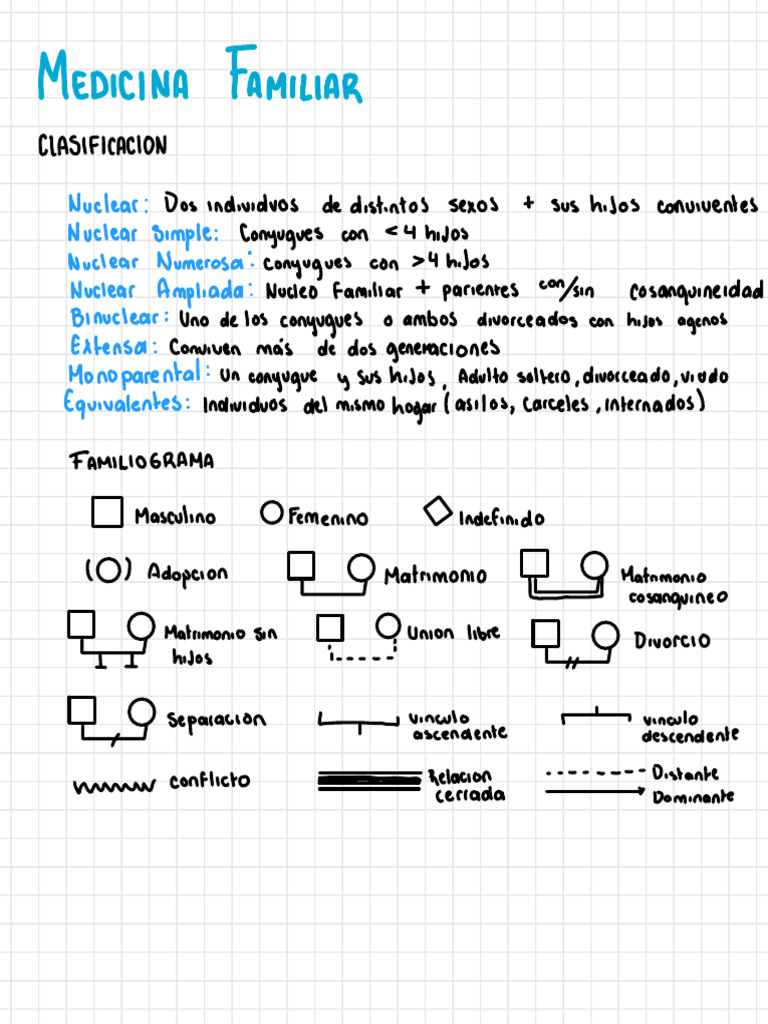 MEDICINA FAMILIAR
CLASIFICACION
Nuclear: Dos individuos de distintos sexos + sus hijos convivientes
Nuclear Simple: Conyugues con < 4 hijos
Nuclear Numerosa: Conyugues con > 4 hijos
Nuclear Ampliada: Nucleo Familiar + parientes con/sin cosanguineidad
Binuclear: Uno de los conyugues o ambos divorceados con hijos agenos
Extensa: Conviven más de dos generaciones
Monoparental: Un conyugue y sus hijos, Adulto soltero, divorceado, viudo
Equivalentes: Individuos del mismo hogar (asilos, Carceles, internados)
FAMILIOGRAMA
Masculino Femenino Indefinido
(O) Adopcion Matrimonio Matrimonio
cosanguineo
Matrimonio sin Union libre Divorcio
hijos
Separacion vinculo vinculo
ascendente descendente
conflicto Relacion Distante
cerrada Dominante